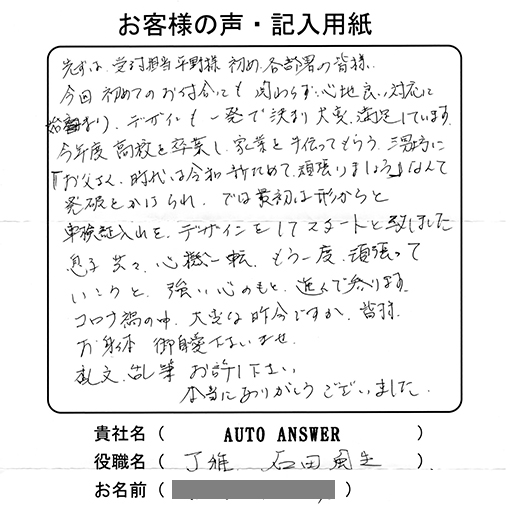 お客様の声・記入用紙
先ずは、受付担当 平野様 初め、各部署の皆様、
今回 初めてのお付合にも 関わらず、心地良い対応に
始まり、デザインも 一発で決まり 大変、満足しています。
今年度 高校を卒業し、家業を手伝ってもらう、三男坊に
『お父さん、時代は令和 改めて、頑張りましょう』なんて
発破をかけられ、では最初は形からと
車検証入れを、デザインを スタートと致しました
息子 共々、心機一転、もう一度、頑張って
いこうと、強い心のもと、進んで参ります。
コロナ禍の中、大変な昨今ですが、皆様、
お身体 御自愛下さいませ。
乱文、乱筆 お許し下さい
本当にありがとうございました。
貴社名( AUTO ANSWER )
役職名( 石田 )
お名前( )